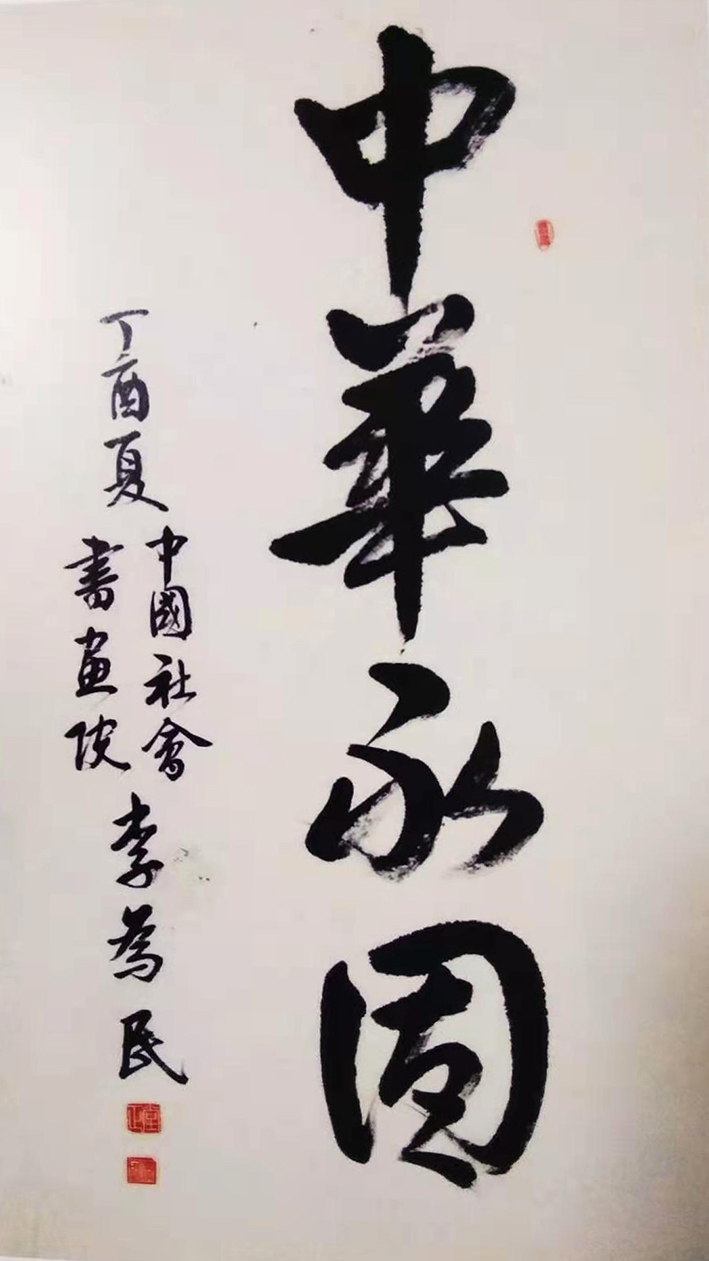 中華永固
丁酉夏
中國社會
書畫院
李為民